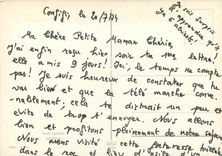 Confifi le 20/7/74
Je suis surpris
d'apprendre que
Ma Chère Petite Maman Chérie,
J'ai enfin reçu hier soir ta lettre !
elle a mis 9 jours ! Ou le temps ne compte
pas ! Je suis heureux de constater que tu
vas bien et que la télé marche conve-
nablement, cela te distrait un peu et
évite de trop t'ennuyer. Nous allons
bien et profitons pleinement de notre séjour
Nous avons visité cette
dans le et bien